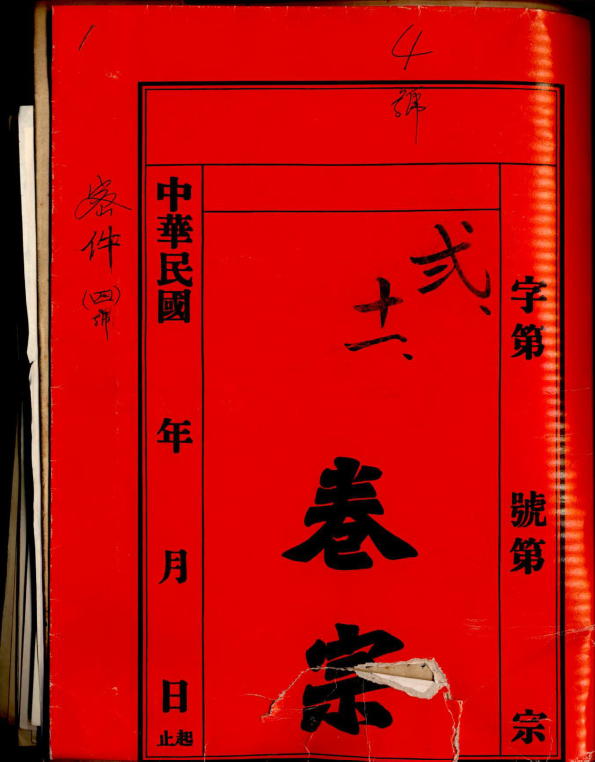 4
號
字第 號第 宗
弍、
十一、
卷宗
中華民國 年 月 日
起
止
密件
(四)
號